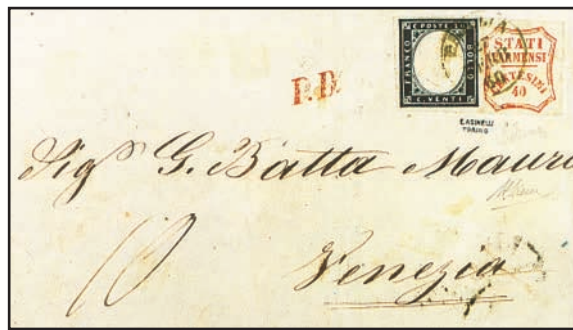 C. POSTE 20
FRANCO
BOLLO
C. VENTI
STATI
PARMENSI
CENTESIMI
40
P.D.
E. ASINELLI
TORINO
Sigr G. Batta Mauro
Venezia